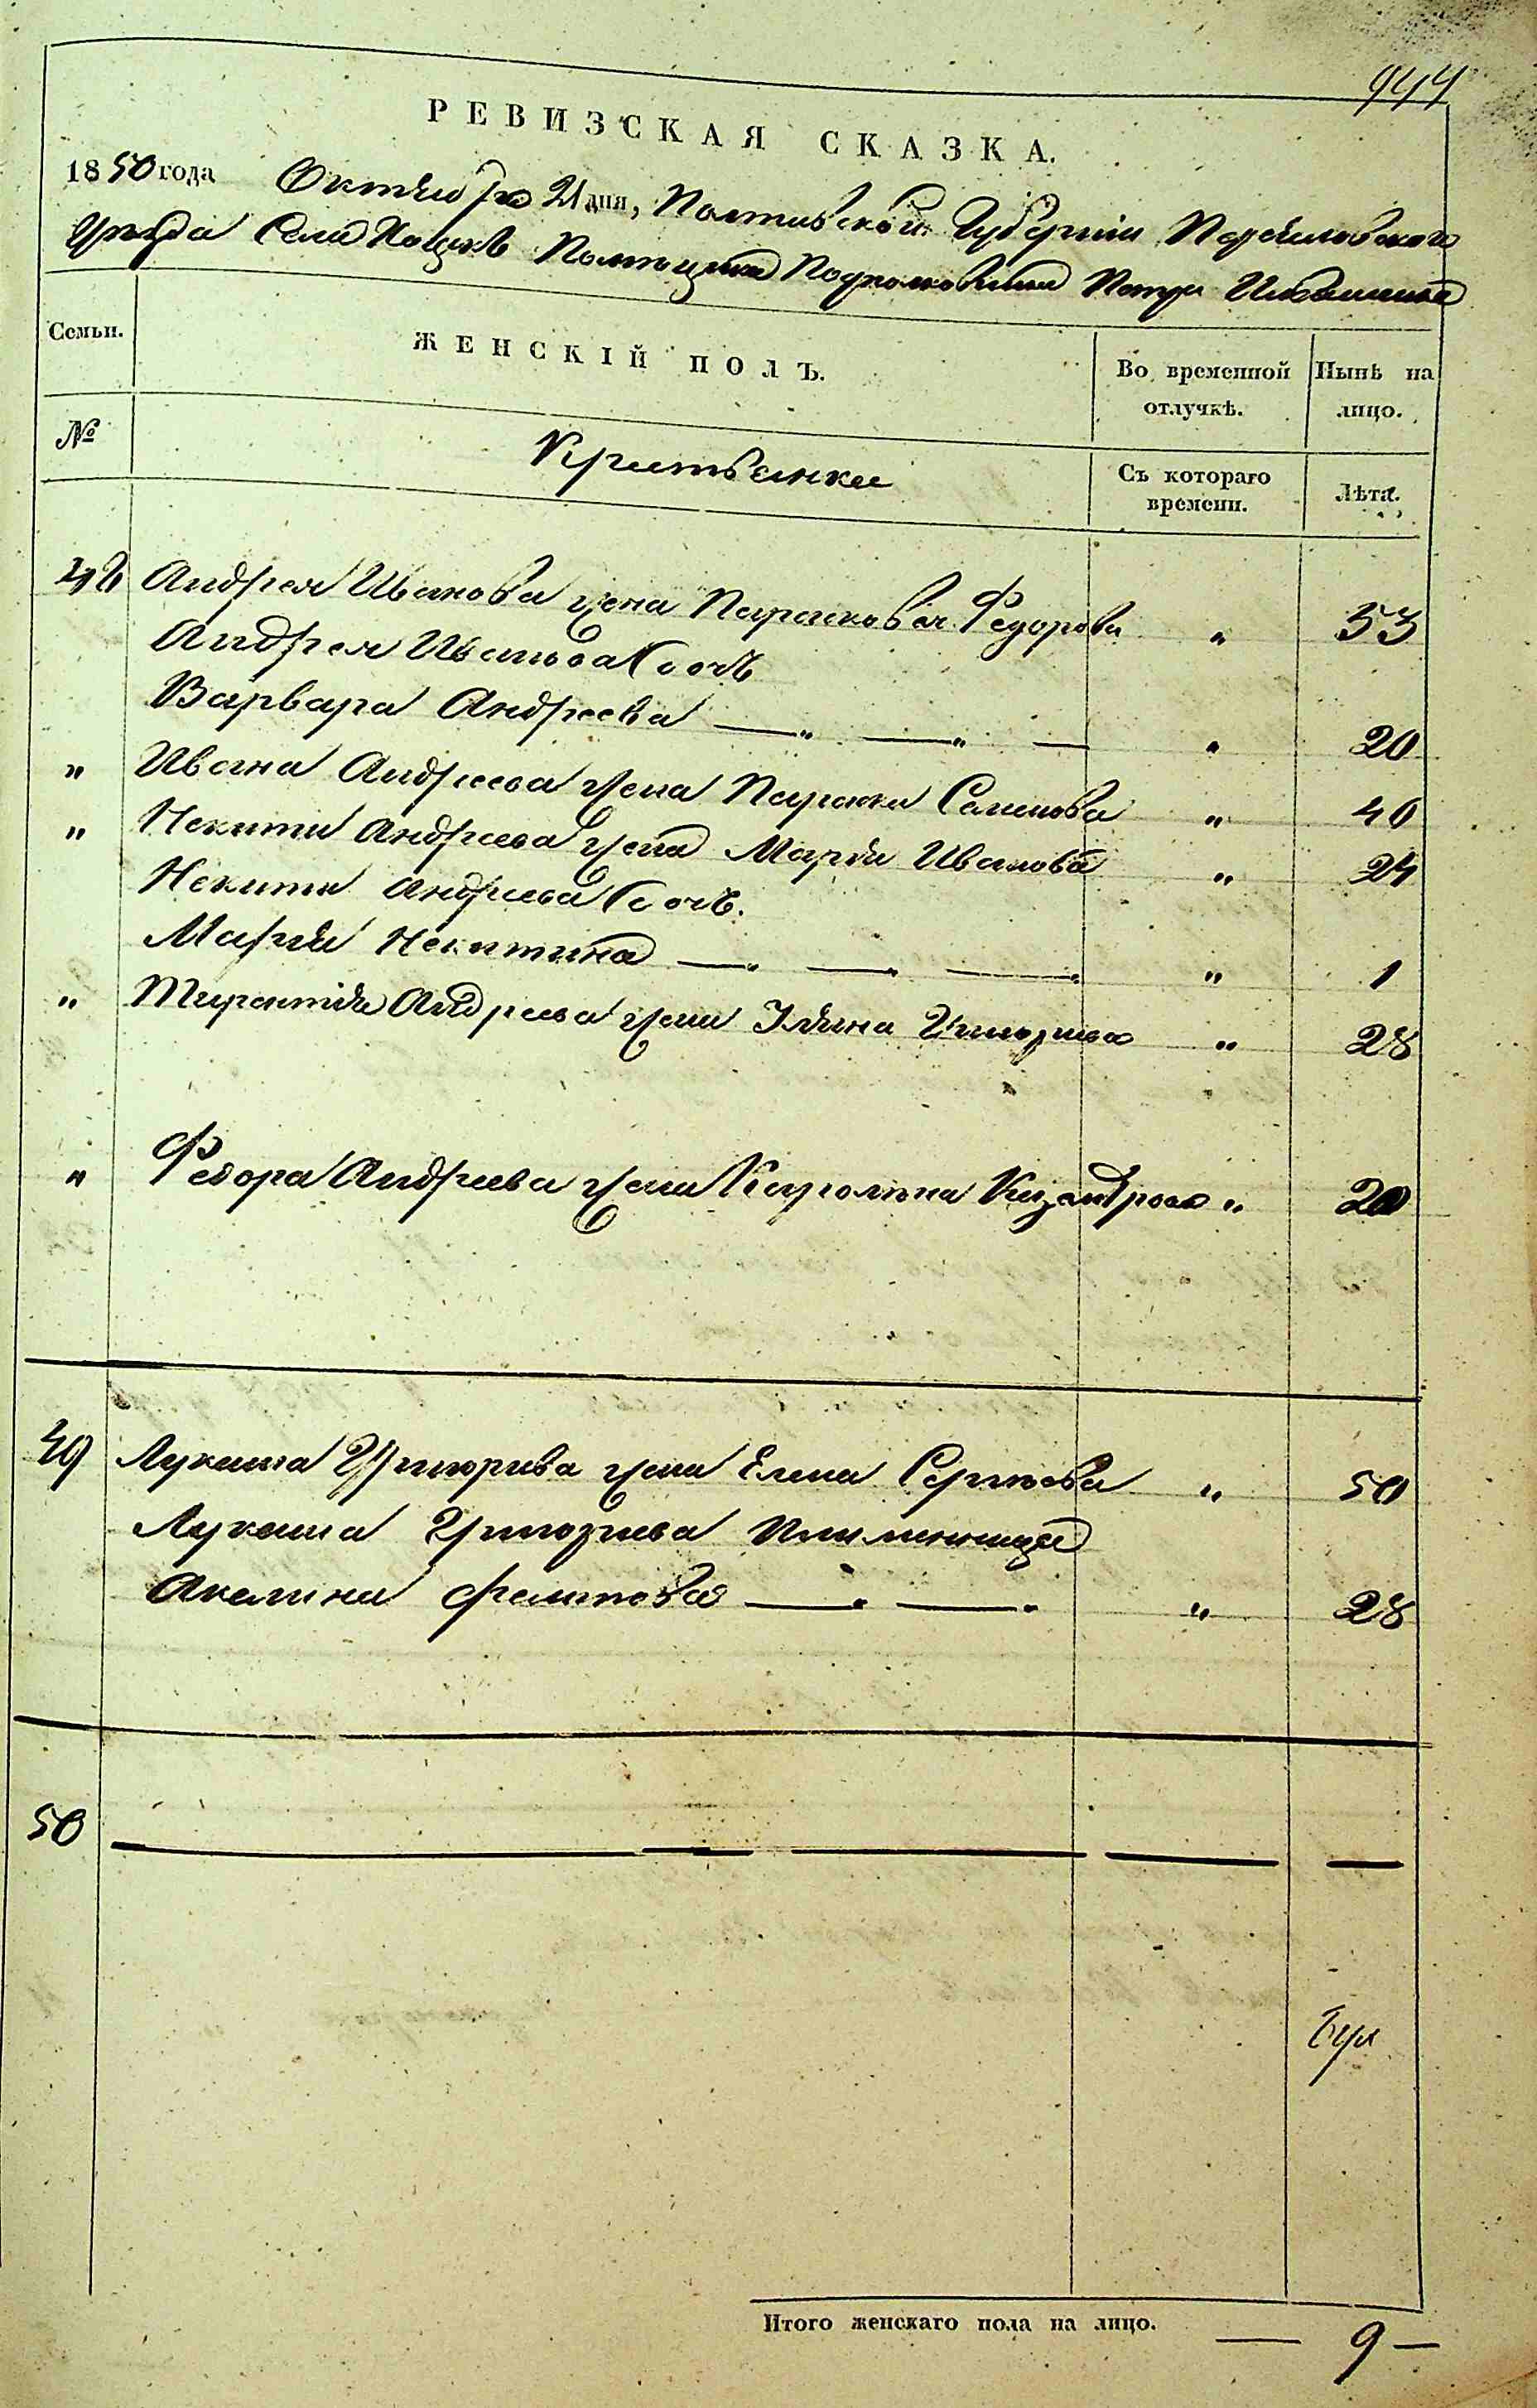 944
РЕВИЗСКАЯ СКАЗКА.
1850 года Октября 21 дня, Полтавской Губерніи Переяславского
Уезда Села Помещика Подполковника Петра
Семьи.
ЖЕНСКІЙ ПОЛЪ.
Во временной отлучкѣ.
Нынѣ на лицо.
№
Крестьянки
Съ котораго времени.
Лѣта.
48 Андрея Иванова жена Парасковея Федорова " 53
Андрея Иванова дочь
Варвара Андреева — " — " — " 20
" Ивана Андреева жена Параска Семенова " 40
" Некиты Андреева жена Марья Иванова " 24
Некиты Андреева дочь.
Марья Некитина — " — " — " " 1
" Андреева жена Григорьева " 28
" Федора Андреева жена " 20
49 Лукаша Григорьева жена Елена Сергеева " 50
Лукаша Григорьева племянница
Акелина Филипова — " — " " 28
50 — — — — —
Итого женскаго пола на лицо. — 9 —